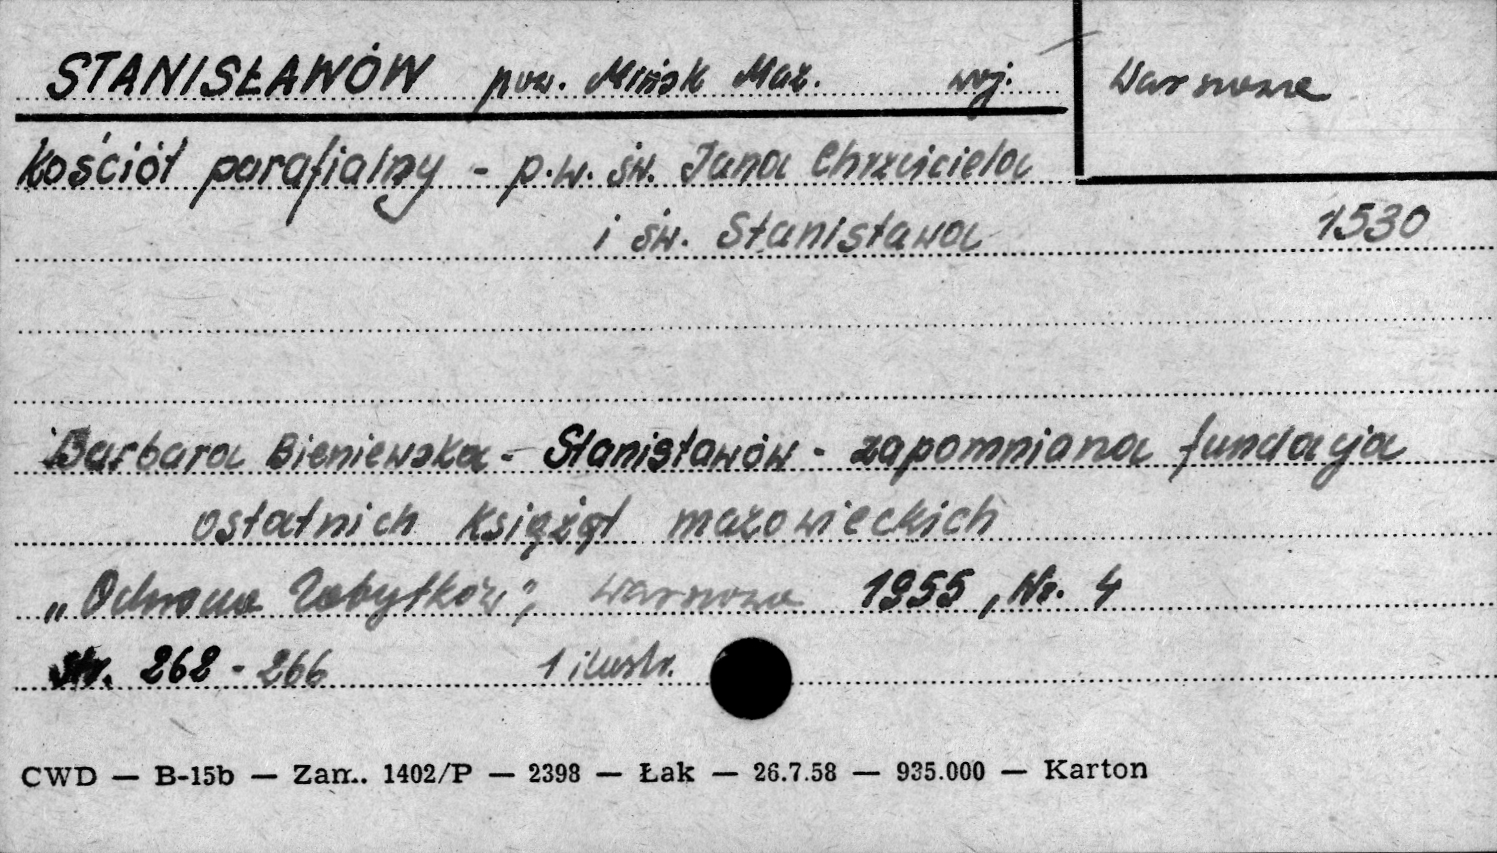 STANISŁAWÓW pow. Mińsk Maz. woj. Warszawa
Kościół parafialny - p.w. św. Jana Chrzciciela
i św. Stanisława 1530
Barbara Bieniewska - Stanisławów - zapomniana fundacja
ostatnich książąt mazowieckich
„Ochrona Zabytków", Warszawa 1955, Nr. 4
str. 262 - 266 1 ilustr.
CWD — B-15b — Zam. 1402/P — 2398 — Łak — 26.7.58 — 935.000 — Karton